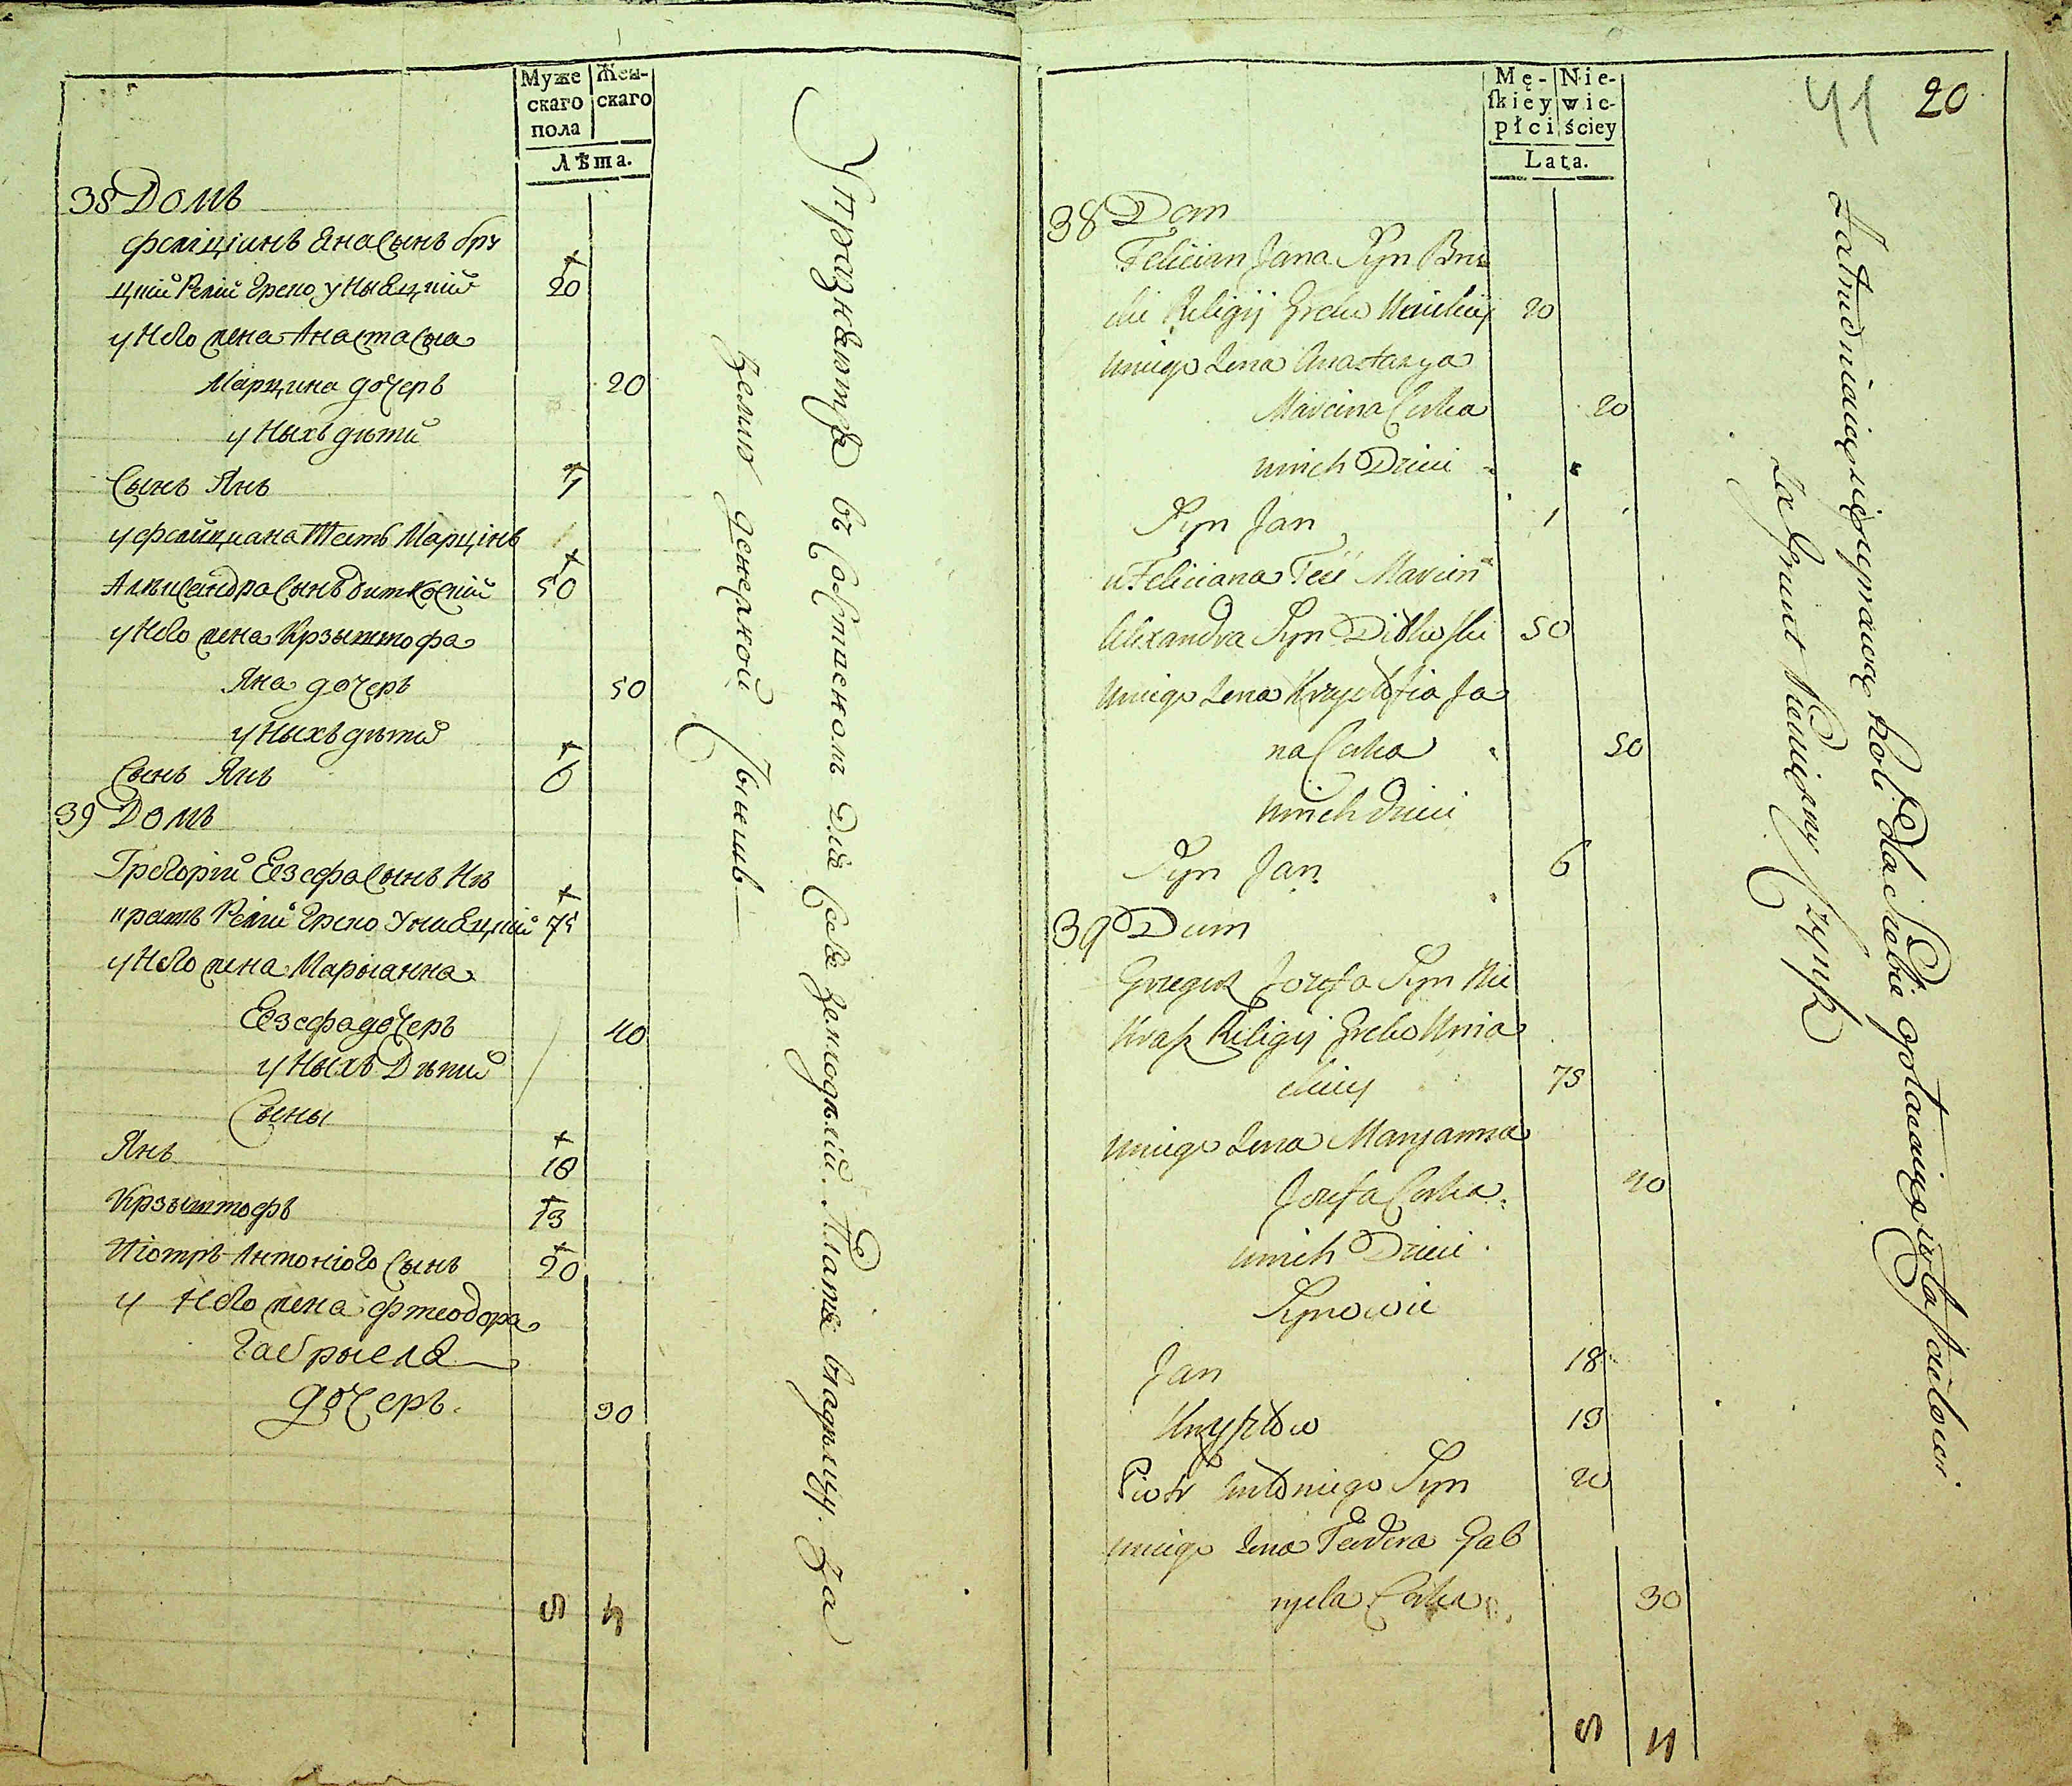 Муже
скаго
пола
Жен-
скаго
Лѣта.
38 Домъ
Фелиціинъ Яна Сынъ бру
цкій Релій Греко Уныяцкій 20
у Него жена Анастасыа
Марцина дочерь 20
у Ныхъ дѣти
Сынъ Янъ 1
у Фелиціана Тесть Марцінъ
Александра Сынъ Витковскій 50
у Него жена Крзыштофа
Яна дочерь 50
у Ныхъ дѣти
Сынъ Янъ 6
39 Домъ
Грегорій Еозефа Сынъ Не
крашъ Релій Греко Униацкій 75
у Него жена Марыанна
Еозефа дочерь 40
у Ныхъ Дѣти
Сыны
Янъ 18
Крзыштофъ 13
Піотръ Антоніого Сынъ 20
у Него жена Фтеодора
Габрыела
дочерь. 30
Упражняются въ Собственномъ для Себя Земледѣліи. Платя владѣльцу. За
Землю денежной Чыншъ
Mę-
skiey
płci
Nie-
wie-
ściey
Lata.
41 20
38 Dom
Felician Jana Syn Bru
cki Religij Greko Unickiij 20
uniego Żena Anastazya
Marcina Corka 20
unich Dzieci
Syn Jan 1
u Feliciana Teść Marcin
Alexandra Syn Ditkoski 50
uniego Żena Krzysztofia Ja
na Corka 50
unich dzieci
Syn Jan 6
39 Dum
Grzegorz Jozefa Syn Nie
krasz Religij Greko Unia
ckiey 75
uniego Żena Maryanna
Jozefa Corka 40
unich Dzieci
Synowie
Jan 18
Krzysztow 13
Piotr Antoniego Syn 20
uniego Żena Teodora Gab
ryela Corka 30
Zatrudniaią się uprawą Roli dla siebie opłacaiąc właścicielowi
Za Grunt Pieniężny Czynsz